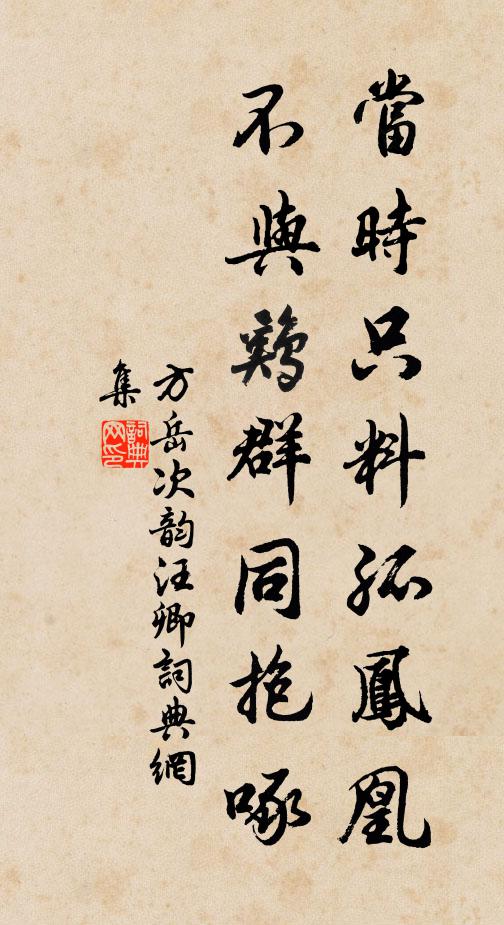 當時只料孤鳳凰
不與鷄群同抱啄
方岳次韵汪卿詞典網
集
詞典
网印